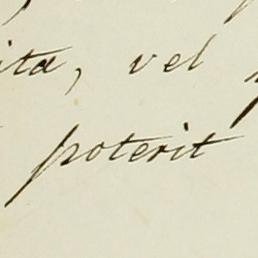 ita, vel
poterit